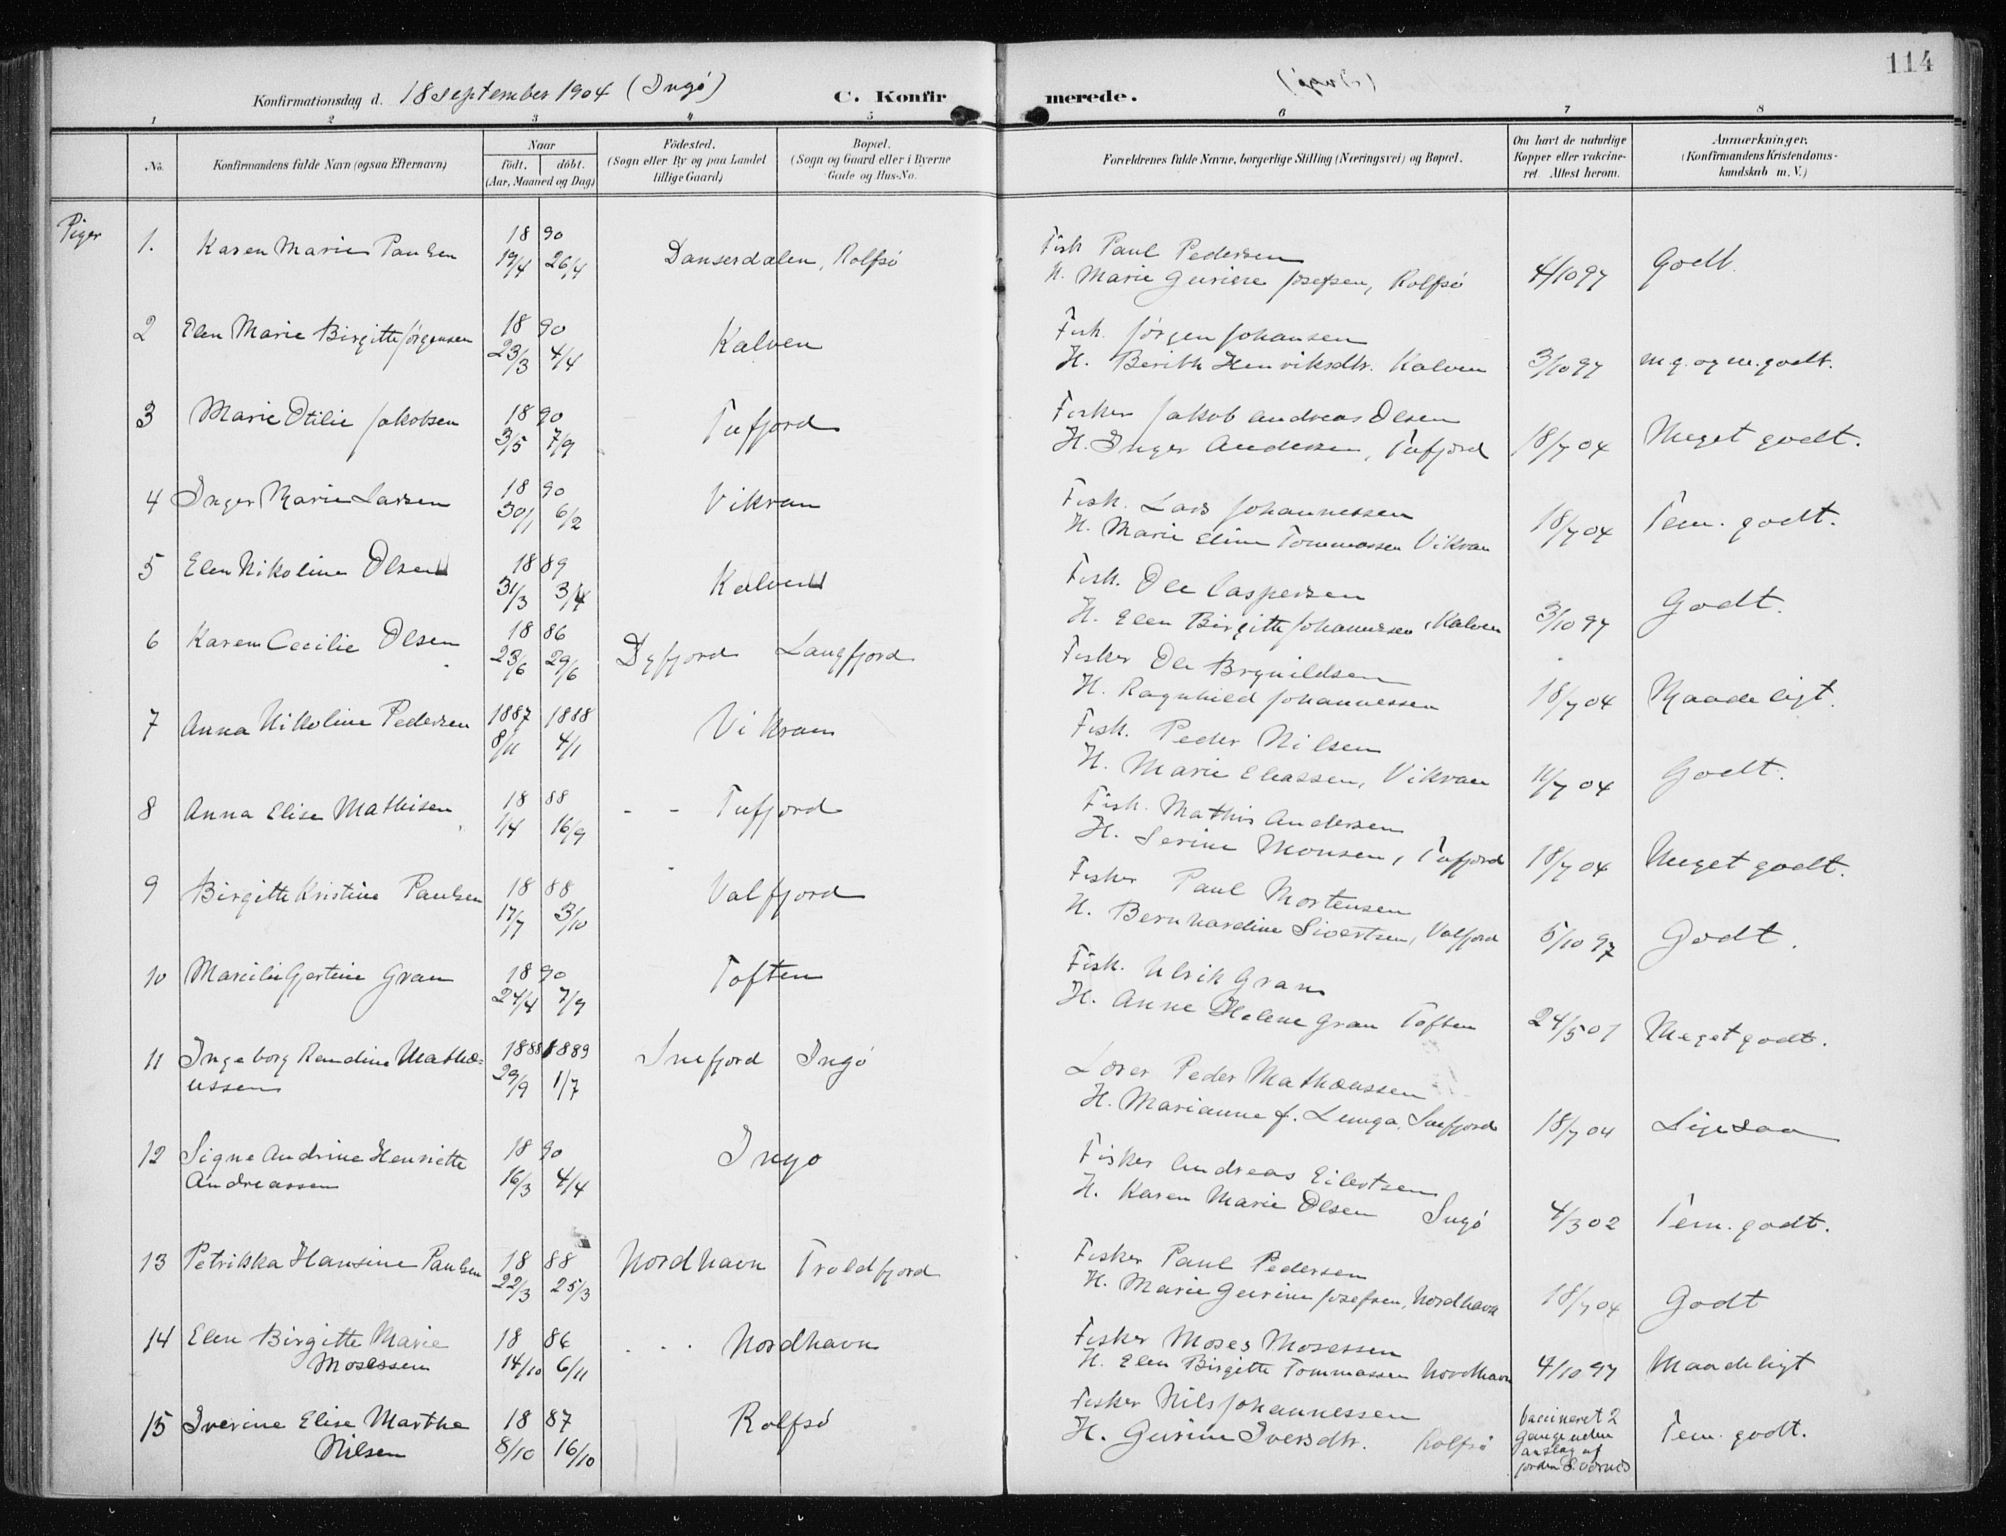 114
Konfirmationsdag d. 18 September 1904 (Ingø) C. Konfirmerede. (Ingø)
1 2 3 4 5 6 7 8
No. Konfirmandens fulde Navn (ogsaa Efternavn) Naar født. døbt. (Aar, Maaned og Dag) Fødested. (Sogn eller By og paa Landet tillige Gaard) Bopæl. (Sogn og Gaard eller i Byerne Gade og Hus-No. Forældrenes fulde Navne, borgerlige Stilling (Næringsvei) og Bopæl. Om havt de naturlige Kopper eller vakcineret. Attest herom. Anmærkninger. (Konfirmandens Kristendomskundskab m. V.)
Piger
1. Karen Marie Paulsen 18 90 Danserdalen, Rolfsø Fisk Paul Pedersen
19/4 26/4 H. Marie Gurine Josefsen, Rolfsø 4/10 97 Godt.
2 Elen Marie Birgitte Jørgensen 18 90 Kalven Fisk. Jørgen Johansen
23/3 4/4 H. Berith Henriksdtr. Kalven 3/10 97 m.g. og m. godt.
3 Marie Otilie Jakobsen 18 90 Tufjord Fisker Jakob Andreas Olsen
3/5 7/9 H. Inger Andersen, Tufjord 18/7 04 Meget godt.
4 Inger Marie Larsen 18 90 Vikran Fisk. Lars Johannessen
30/1 6/2 H. Marie Eline Tommassen Vikran 18/7 04 Tem. godt.
5 Elen Nikoline Olsen 18 89 Kalven Fisk. Ole Caspersen
31/3 3/4 H. Elen Birgitte Johannesen, Kalven 3/10 97 Godt.
6 Karen Cecilie Olsen 18 86 Dyfjord Langfjord Fisker Ole Brynildsen
23/6 29/6 H. Ragnhild Johannessen 18/7 04 Maadeligt.
7 Anna Nikoline Pedersen 1887 1888 Vikran Fisk. Peder Nilsen
8/11 4/1 H. Marie Eliassen, Vikran 11/7 04 Godt.
8 Anna Elise Mathisen 18 88 - - Tufjord Fisk. Mathis Andersen
1/4 16/9 H. Serine Monsen, Tufjord 18/7 04 Meget godt.
9 Birgitte Kristine Paulsen 18 88 Valfjord Fisker Paul Mortensen
17/7 3/10 H. Bernhardine Sivertsen, Valfjord 5/10 97 Godt.
10 Marcilie Gjertine Gran 18 90 Toften Fisk. Ulrik Gran
24/4 7/9 H. Anne Helene Gran Toften 24/5 01 Meget godt.
11 Ingeborg Randine Mathæ- 1888 1889 Snefjord Ingø Lærer Peder Mathæussen
ussen 29/9 1/7 H. Marianne f. Lemga, Snefjord 18/7 04 Ligesaa
12 Signe Andrine Henriette 18 90 Ingø Fisker Andreas Eilertsen
Andreassen 16/3 4/4 H. Karen Marie Olsen Ingø 4/3 02 Tem. godt.
13 Petrikka Hansine Paulsen 18 88 Nordhavn Troldfjord Fisker Paul Pedersen
22/3 25/3 H. Marie Gurine Josefsen, Nordhavn 18/7 04 Godt
14 Elen Birgitte Marie 18 86 . . . Nordhavn Fisker Moses Mosessen
Mosessen 14/10 6/11 H. Elen Birgitte Tommassen Nordhavn 4/10 97 Maadeligt
15 Iverine Elise Marthe 18 87 Rolfsø Fisker Nils Johannessen
Nilsen 8/10 16/10 H. Gurine Iversdtr. Rolfsø Tem. godt.
vaccineret 2
Gange uden
anslag af